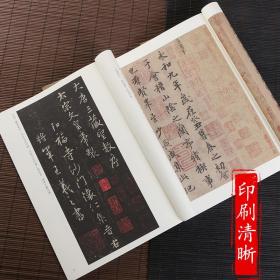 永和九年歲在癸丑暮春之初
于會稽山陰之蘭亭脩稧事
也羣賢畢至少長咸集
大唐三藏聖教序
太宗文皇帝製
弘福寺沙門懷仁集晉
右將軍王羲之書
印刷清晰